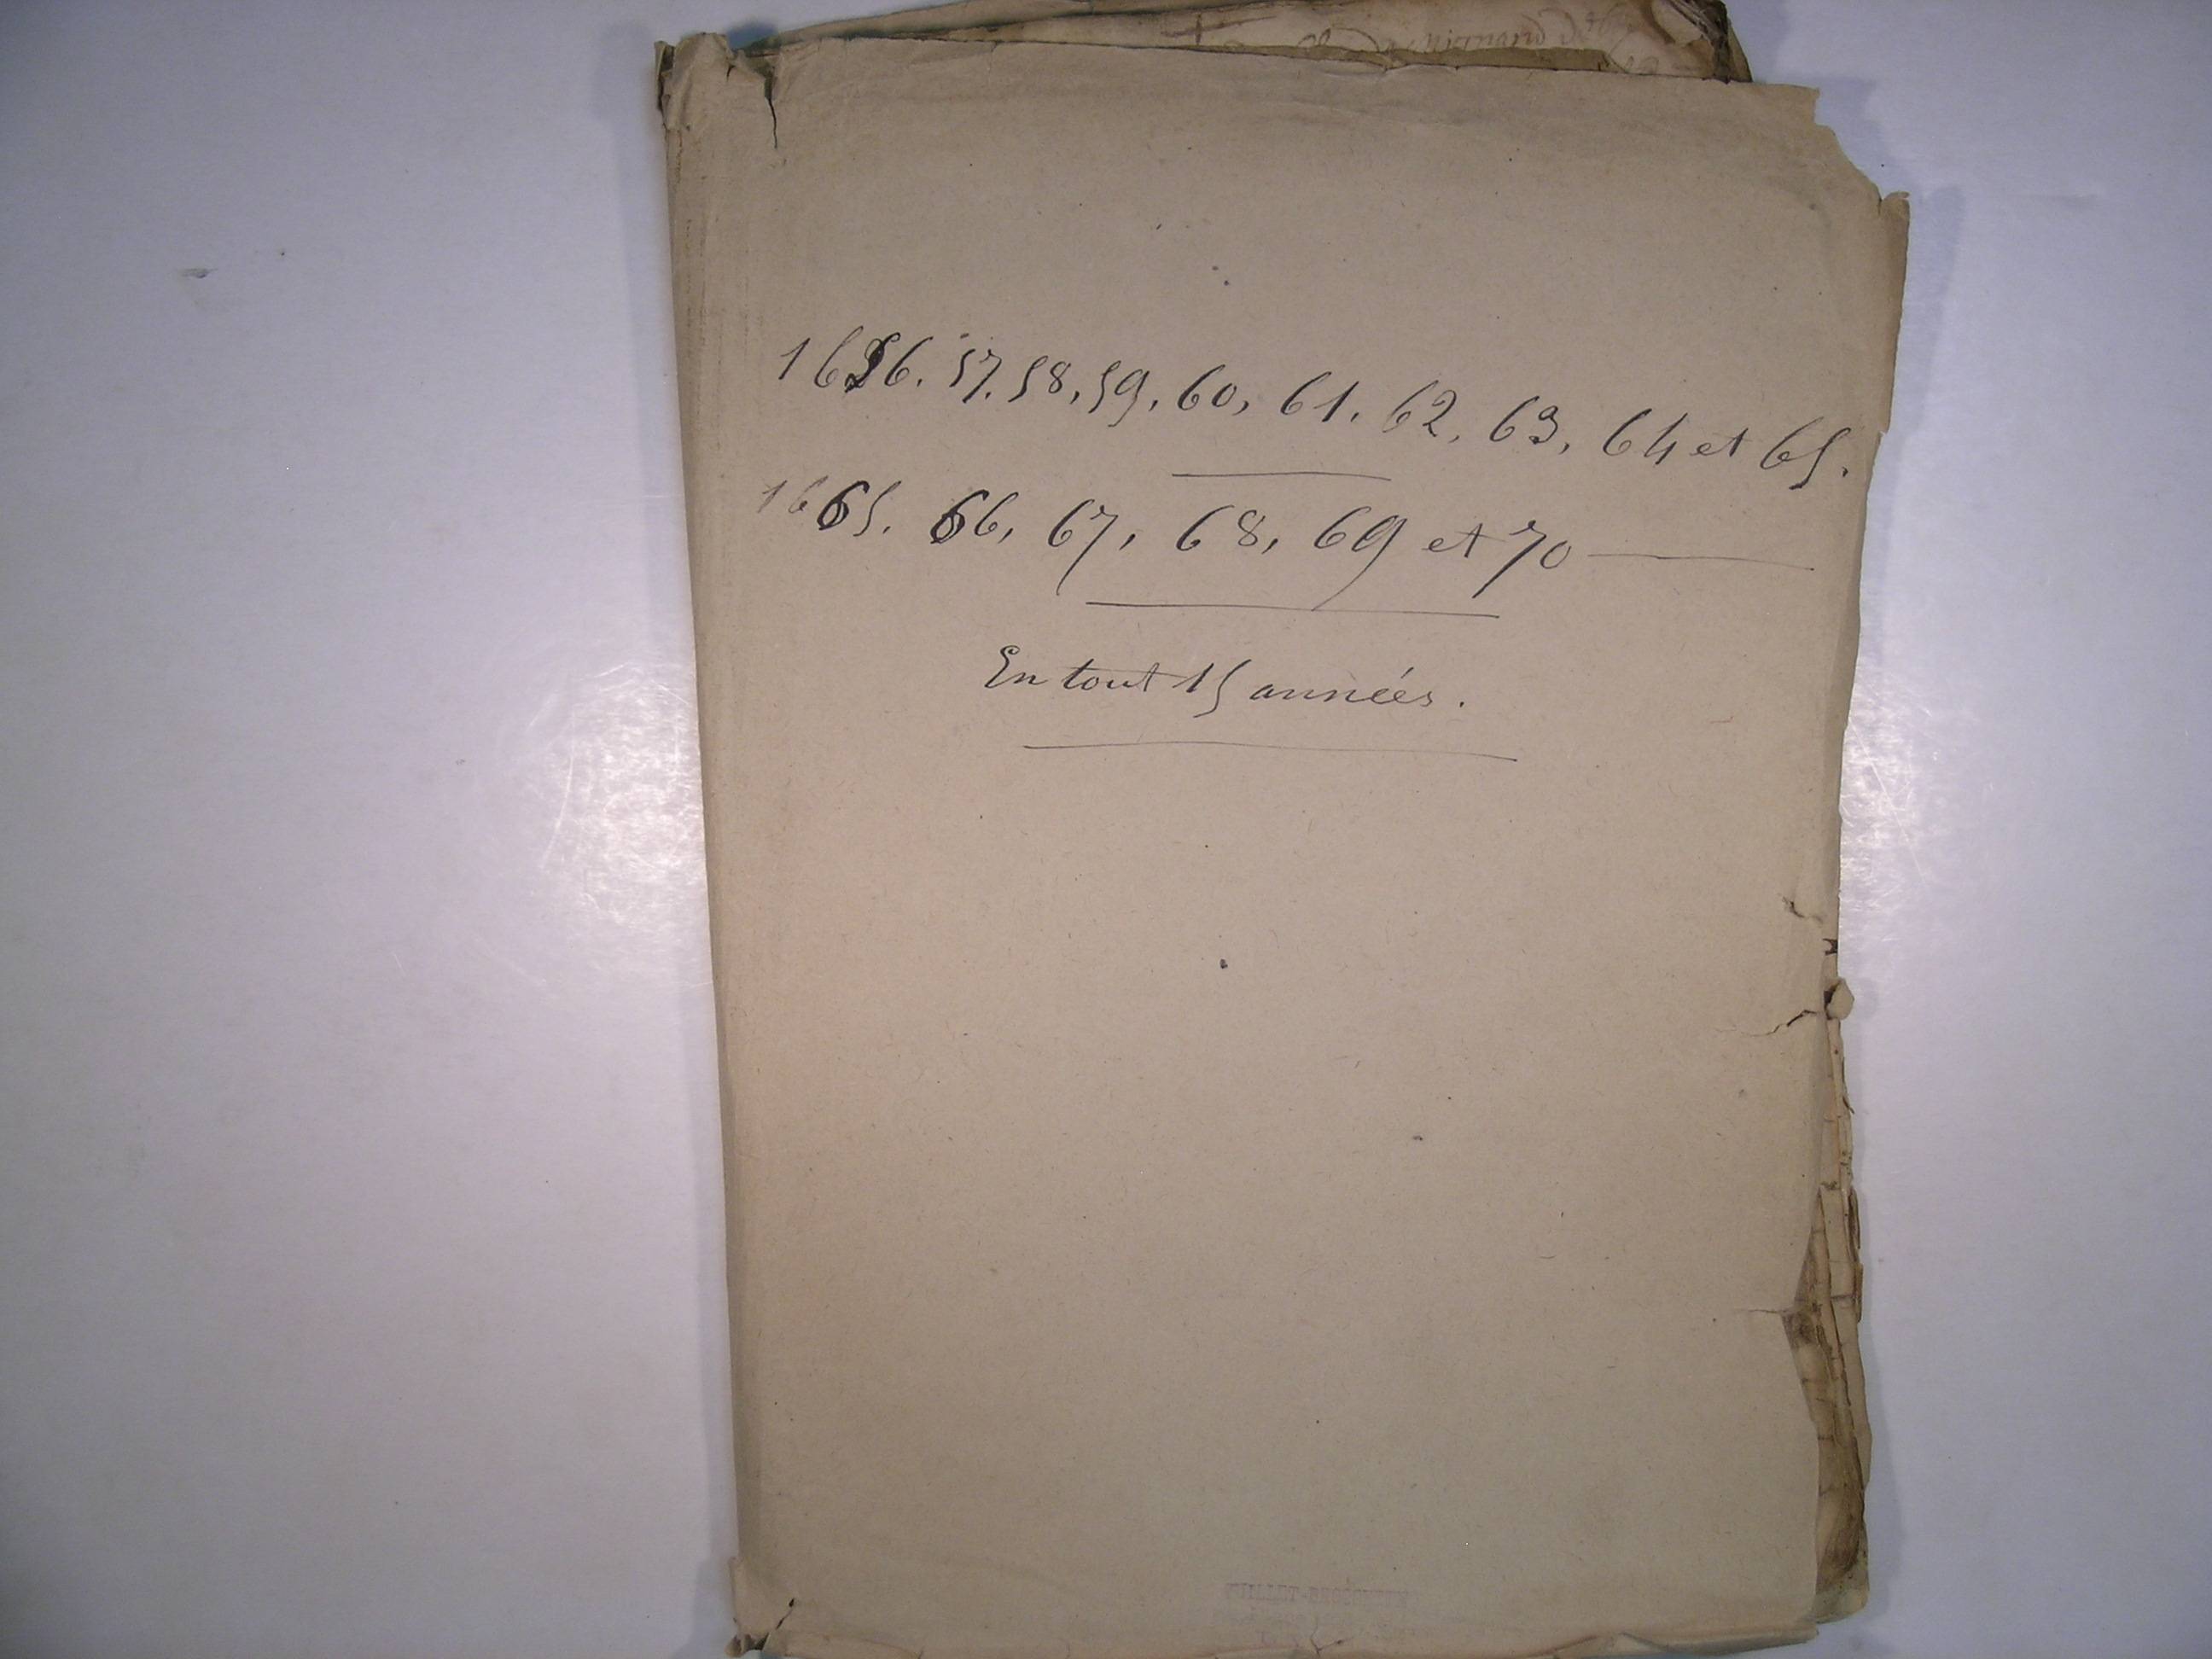 1656. 57. 58, 59, 60, 61, 62, 63, 64 et 65.
1665. 66, 67, 68, 69 et 70
En tout 15 années.